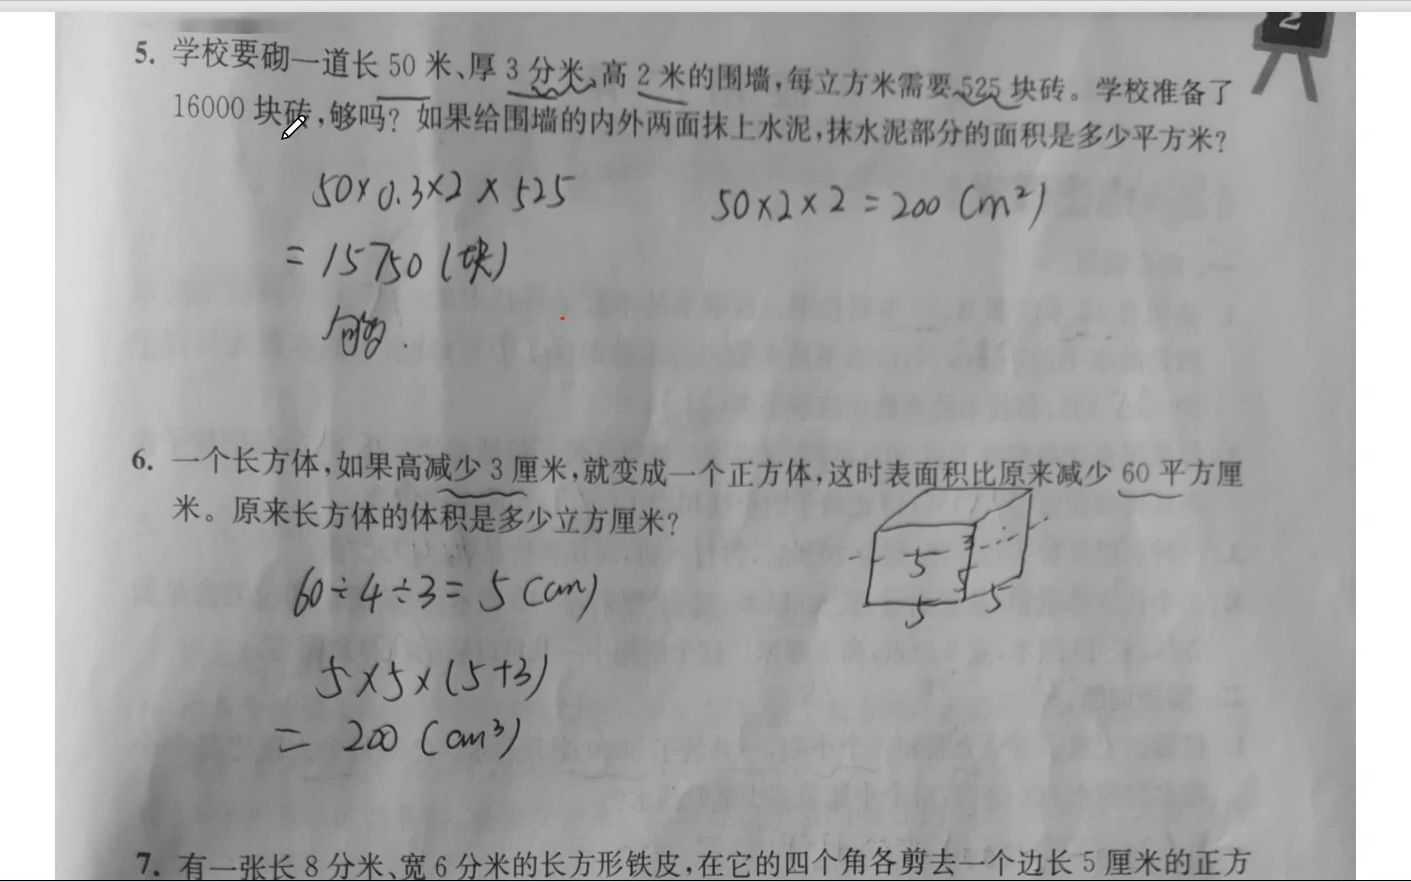 2
5. 学校要砌一道长 50 米、厚 3 分米、高 2 米的围墙,每立方米需要 525 块砖。学校准备了
16000 块砖,够吗?如果给围墙的内外两面抹上水泥,抹水泥部分的面积是多少平方米?
50×0.3×2×525
50×2×2=200(m²)
=15750(块)
够.
6. 一个长方体,如果高减少 3 厘米,就变成一个正方体,这时表面积比原来减少 60 平方厘
米。原来长方体的体积是多少立方厘米?
3
5
5
5
5
60÷4÷3=5(cm)
5×5×(5+3)
=200(cm³)
7. 有一张长 8 分米、宽 6 分米的长方形铁皮,在它的四个角各剪去一个边长 5 厘米的正方